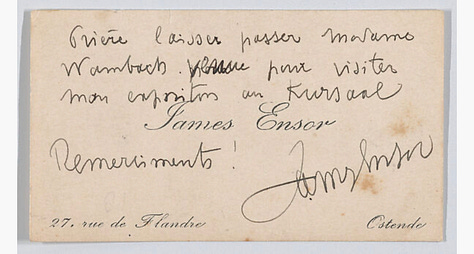 Prière laisser passer Madame
Wambach venue pour visiter
mon expositon au Kursaal
James Ensor
Remerciments !
James Ensor
27. rue de Flandre
Ostende